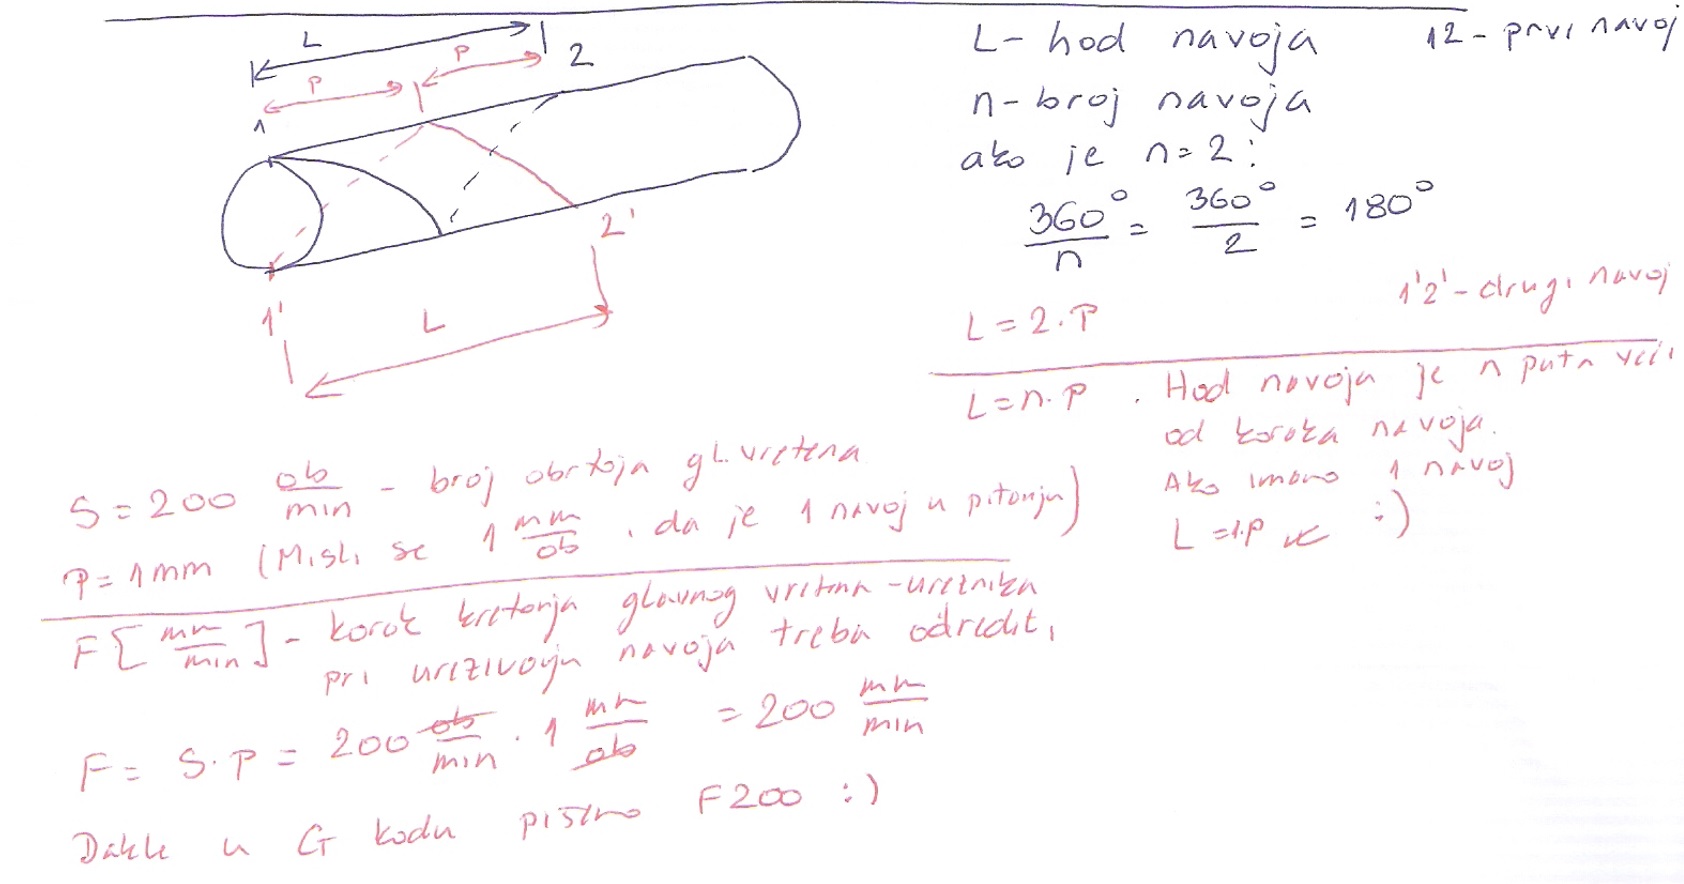 L
P
P
1
2
2'
1'
L
L- hod navoja
12 - prvi navoj
n - broj navoja
ako je n=2:
360°/n = 360°/2 = 180°
1'2' - drugi navoj
L = 2·P
L=n·P. Hod navoja je n puta veći
od koraka navoja.
Ako imamo 1 navoj
L=1·P :)
S = 200 ob/min - broj obrtaja gl. vretena
P = 1mm (Misli se 1 mm/ob, da je 1 navoj u pitanju)
F [mm/min] - korak kretanja glavnog vretena - ureznika
pri urezivanju navoja treba odrediti
F = S·P = 200 ob/min · 1 mm/ob = 200 mm/min
Dakle u G kodu pišemo F200 :)